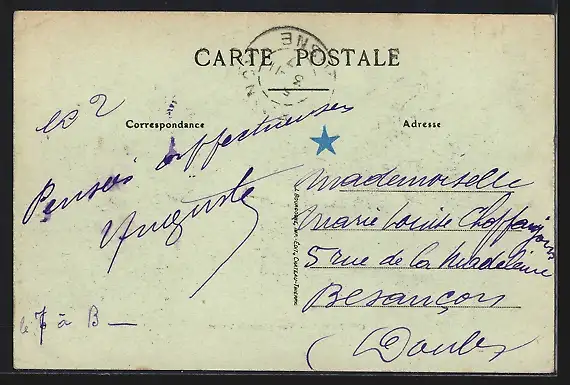 CARTE POSTALE
Correspondance
Adresse
Pensées affectueuses
Auguste
le 7 à B —
Mademoiselle
Marie Louise Choffanjon
5 rue de la Madeleine
Besançon
(Doubs)